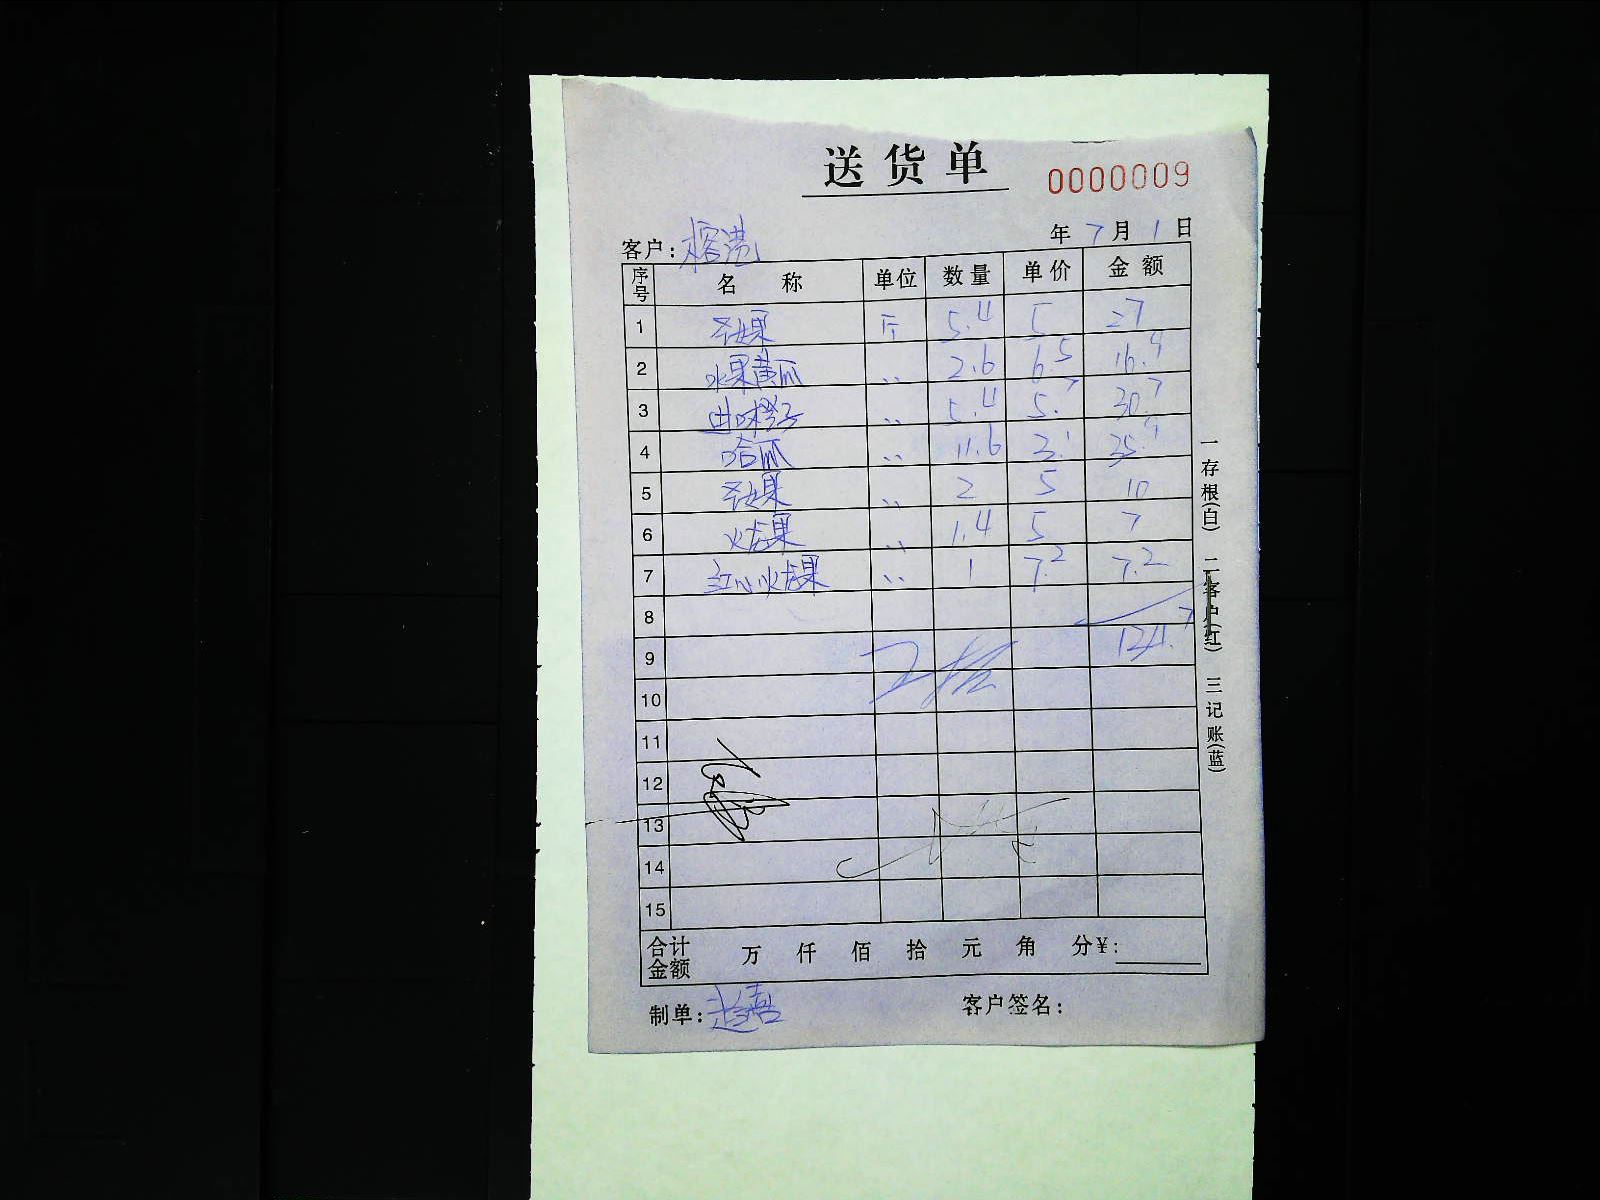 送货单 0000009
客户：榕港 年 7 月 1 日
序号 名称 单位 数量 单价 金额
1 圣女果 斤 5.4 5 27
2 水果黄瓜 〃 2.6 6.5 16.9
3 进口橙子 〃 5.4 5.7 30.7
4 哈瓜 〃 11.6 3.1 35.9
5 圣女果 〃 2 5 10
6 火龙果 〃 1.4 5 7
7 红心火龙果 〃 1 7.2 7.2
8
9 124.7
10
11
12
13
14
15
合计金额 万 仟 佰 拾 元 角 分 ¥：
制单： 客户签名：
一存根(白) 二客户(红) 三记账(蓝)